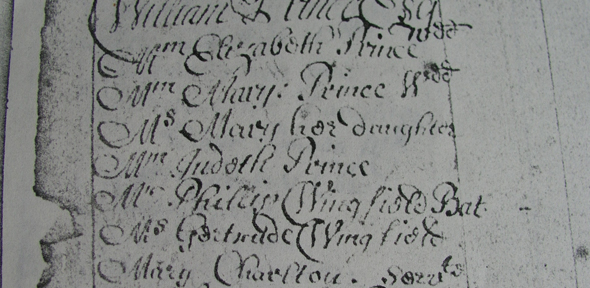 William Prince Esqr
Mm Elizabeth Prince Wdd
Mm Mary: Prince Wdd
Ms Mary her daughter
Mm Judeth Prince
Mr Phillip Wingfield Bat
Ms Gertrude Wingfield
Mary Charlton. Servts